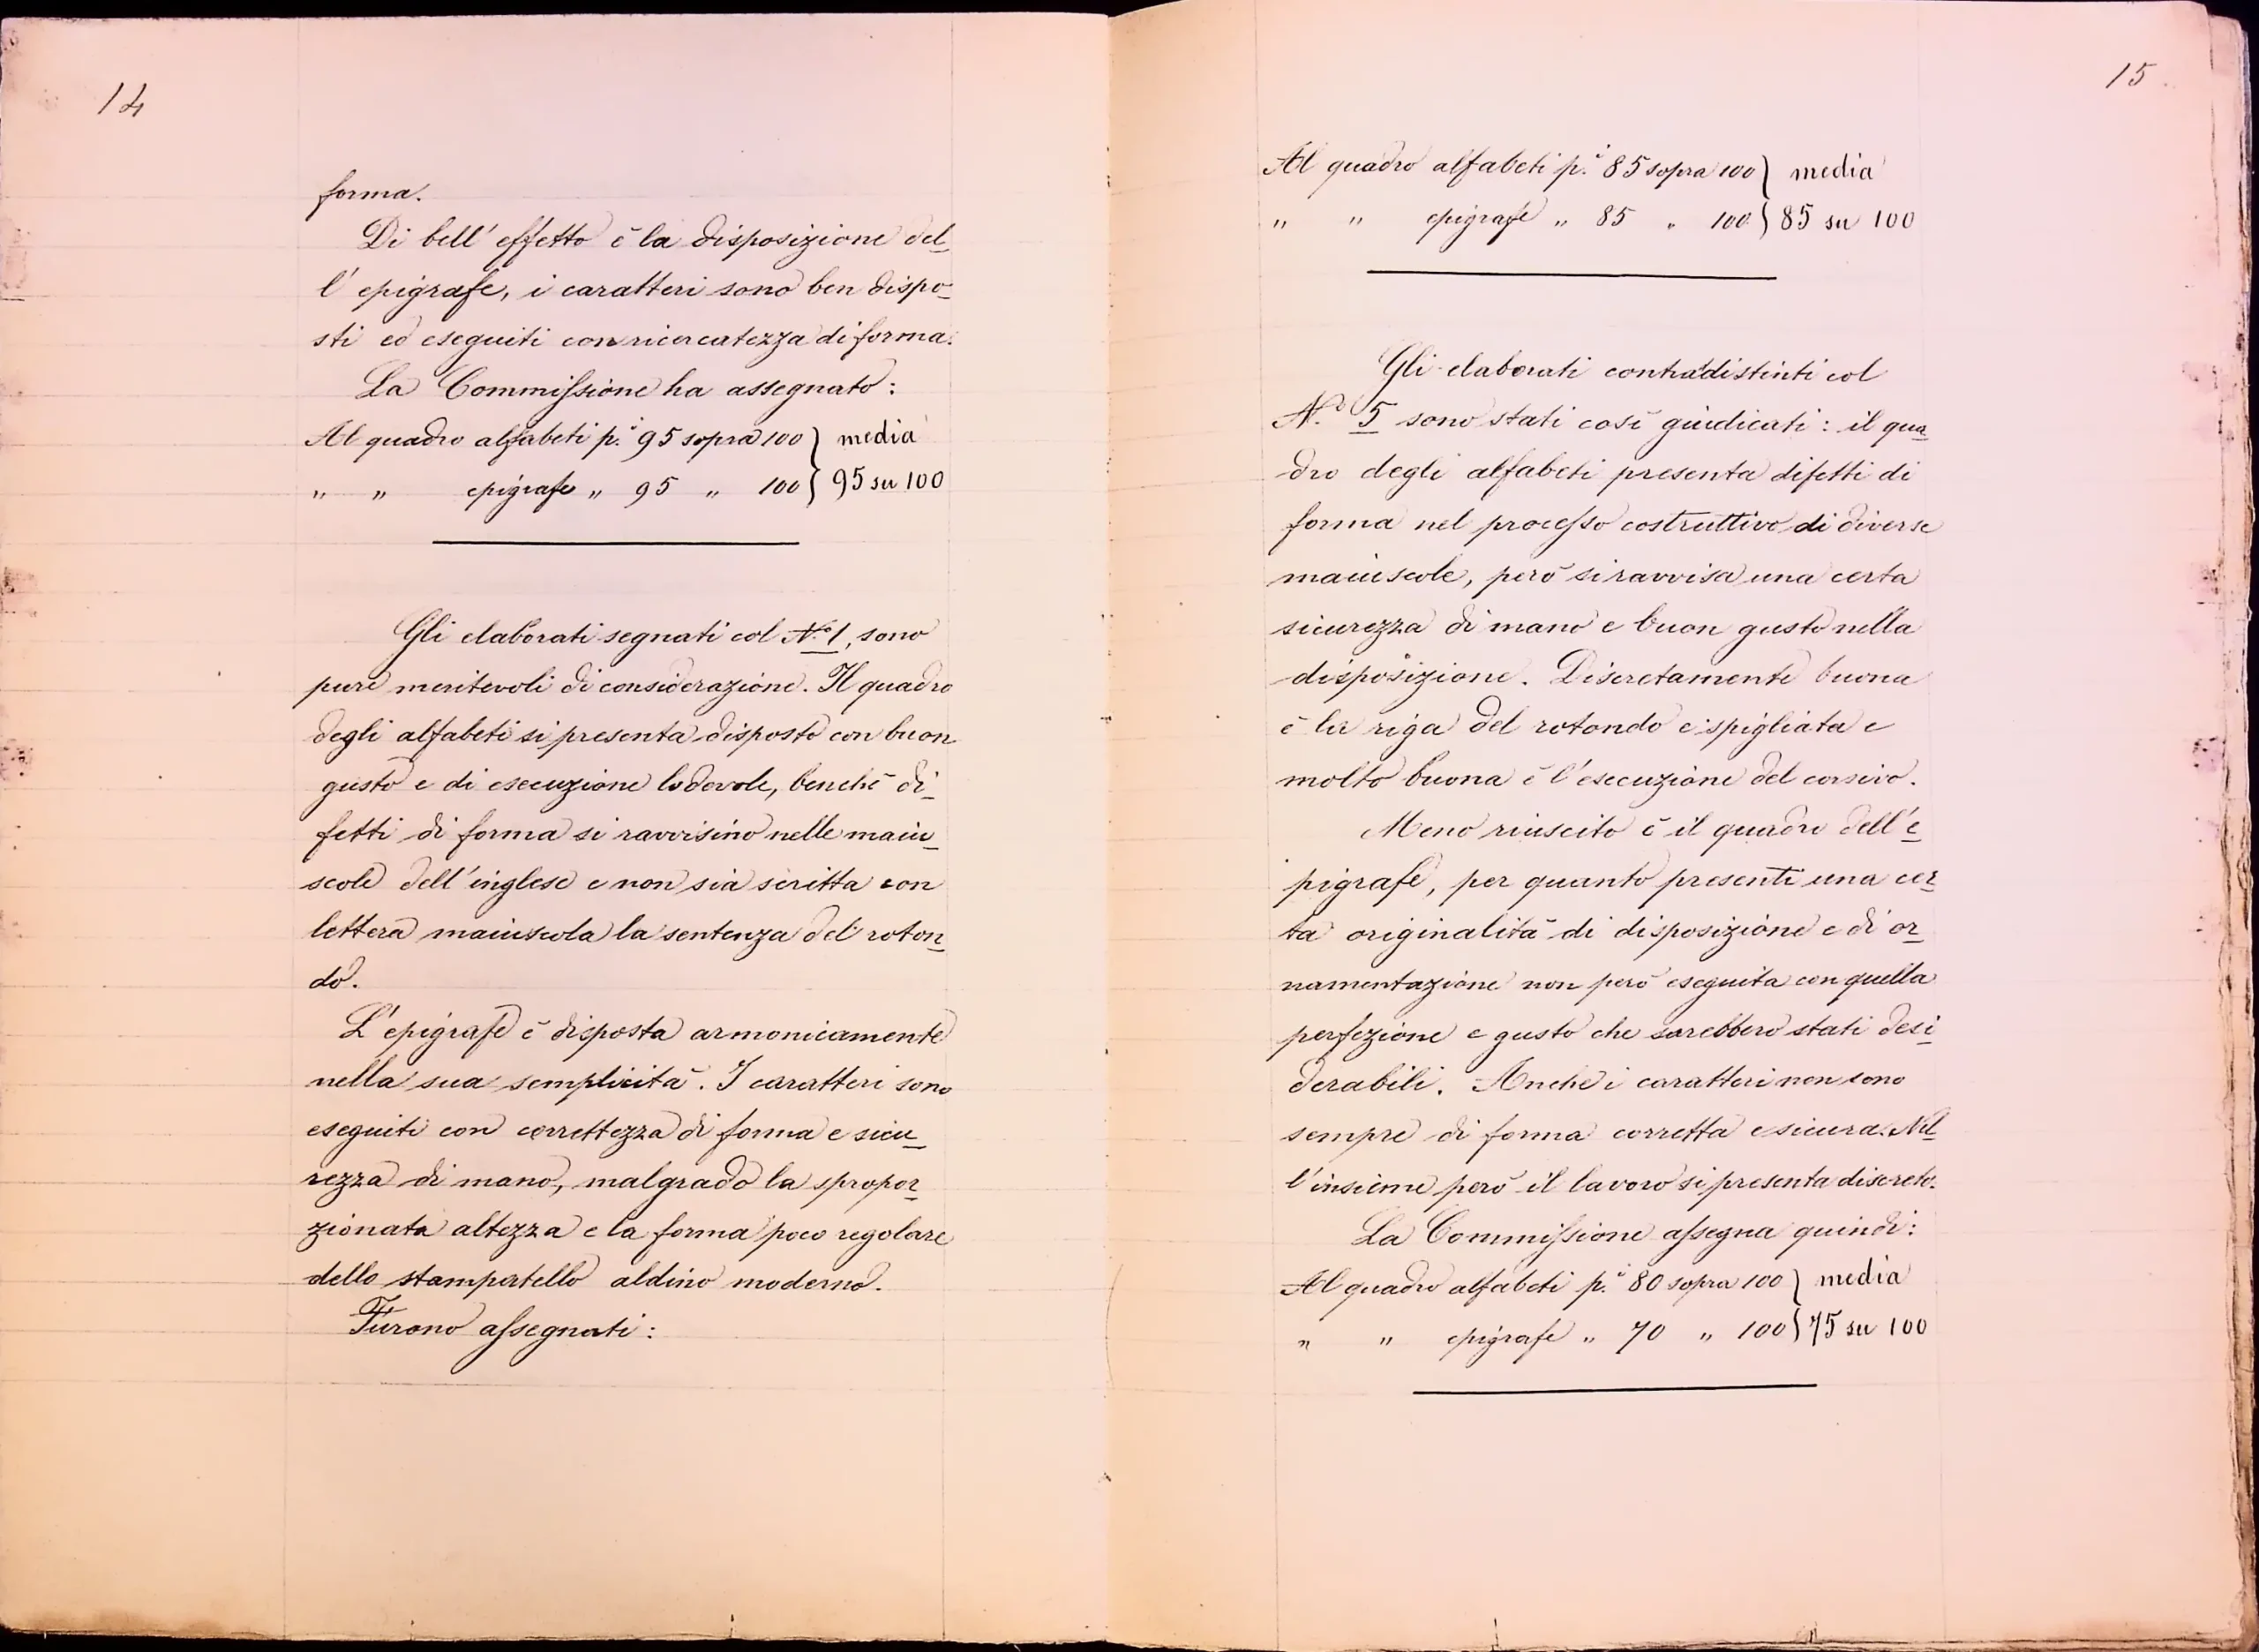 14
forma.
Di bell' effetto è la disposizione del-
l' epigrafe, i caratteri sono ben dispo-
sti ed eseguiti con ricercatezza di forma.
La Commissione ha assegnato:
Al quadro alfabeti p.i 95 sopra 100 } media
„ „ epigrafe „ 95 „ 100 } 95 su 100
Gli elaborati segnati col N.o 1, sono
pure meritevoli di considerazione. Il quadro
degli alfabeti si presenta disposto con buon
gusto e di esecuzione lodevole, benchè di-
fetti di forma si ravvisino nelle maiu-
scole dell'inglese e non sia scritta con
lettera maiuscola la sentenza del roton-
do.
L'epigrafe è disposta armonicamente
nella sua semplicità. I caratteri sono
eseguiti con correttezza di forma e sicu-
rezza di mano, malgrado la spropor-
zionata altezza e la forma poco regolare
dello stampatello aldino moderno.
Furono assegnati:
15
Al quadro alfabeti p.i 85 sopra 100 } media
„ „ epigrafe „ 85 „ 100 } 85 su 100
Gli elaborati contradistinti col
N.o 5 sono stati così giudicati: il qua-
dro degli alfabeti presenta difetti di
forma nel processo costruttivo di diverse
maiuscole, però si ravvisa una certa
sicurezza di mano e buon gusto nella
disposizione. Discretamente buona
è la riga del rotondo e spigliata e
molto buona è l'esecuzione del corsivo.
Meno riuscito è il quadro dell'e-
pigrafe, per quanto presenti una cer-
ta originalità di disposizione e di or-
namentazione non però eseguita con quella
perfezione e gusto che sarebbero stati desi-
derabili. Anche i caratteri non sono
sempre di forma corretta e sicura. Nel-
l'insieme però il lavoro si presenta discreto.
La Commissione assegna quindi:
Al quadro alfabeti p.i 80 sopra 100 } media
„ „ epigrafe „ 70 „ 100 } 75 su 100